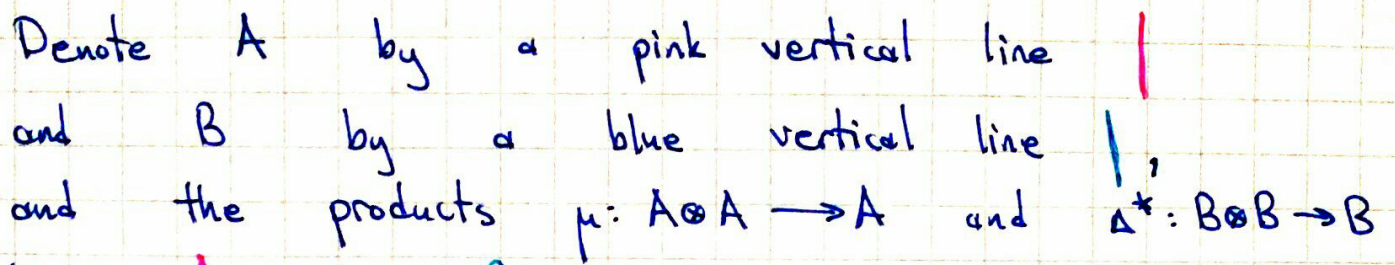 Denote A by a pink vertical line |
and B by a blue vertical line |,
and the products μ: A⊗A ⟶ A and Δ*: B⊗B → B